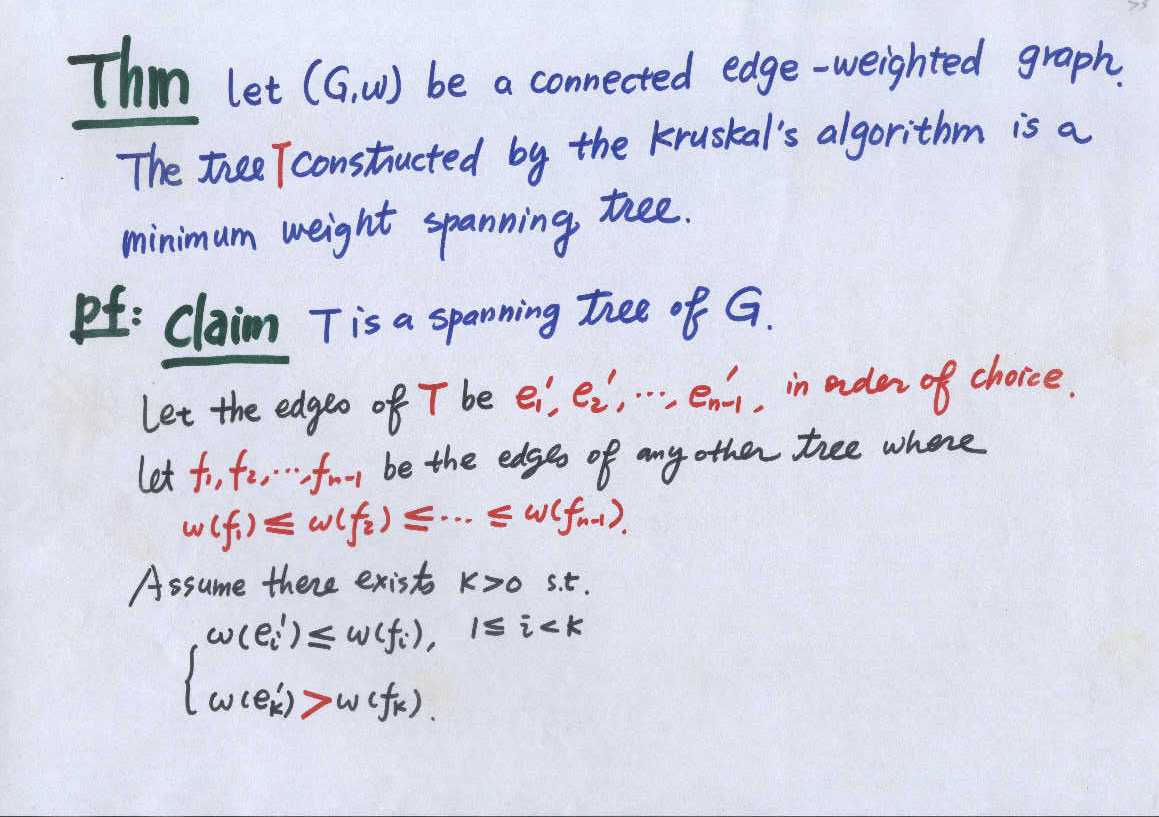 Thm Let (G,w) be a connected edge-weighted graph.
The tree T constructed by the Kruskal's algorithm is a
minimum weight spanning tree.
pf: Claim T is a spanning tree of G.
Let the edges of T be e₁', e₂', ..., eₙ₋₁', in order of choice.
Let f₁, f₂, ..., fₙ₋₁ be the edges of any other tree where
w(f₁) ≤ w(f₂) ≤ ... ≤ w(fₙ₋₁).
Assume there exists k>0 s.t.
w(eᵢ') ≤ w(fᵢ), 1 ≤ i < k
w(eₖ') > w(fₖ).